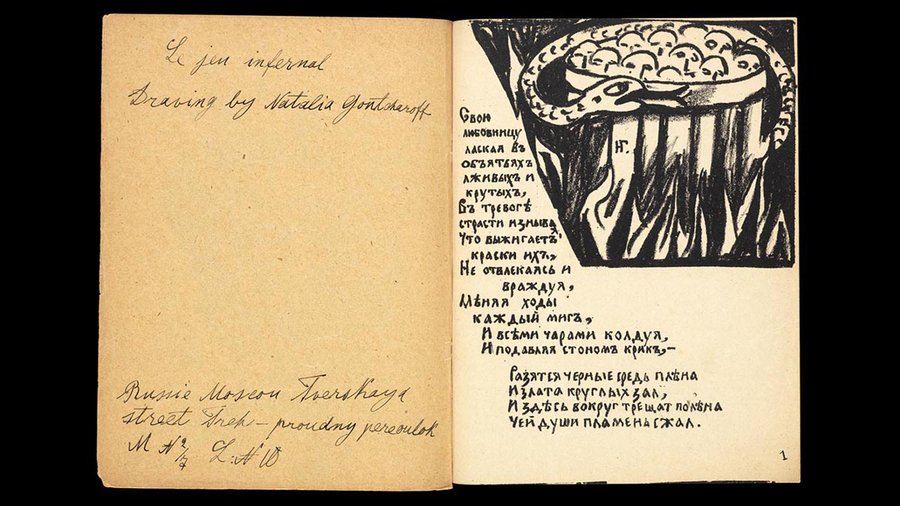 Le jeu infernal
Drawing by Natalia Gontsharoff
Russie Moscou Tverskaya
street Treh-proudny pereoulok
M N 2/7 L: N 10
НГ.
Свою
любовницу
лаская въ
объятьяхъ
лживыхъ и
крутыхъ,
Въ тревогѣ
страсти изнывая
Что выжигаетъ
краски ихъ,
Не отвлекаясь и
враждуя,
Мѣняя ходы
каждый мигъ,
И всѣми чарами колдуя,
И подавляя стономъ крикъ,—
Разятся черные средь плѣна
И злата круглых зал,
И здѣсь вокруг трещат полѣна
Чей души пламень сжал.
1